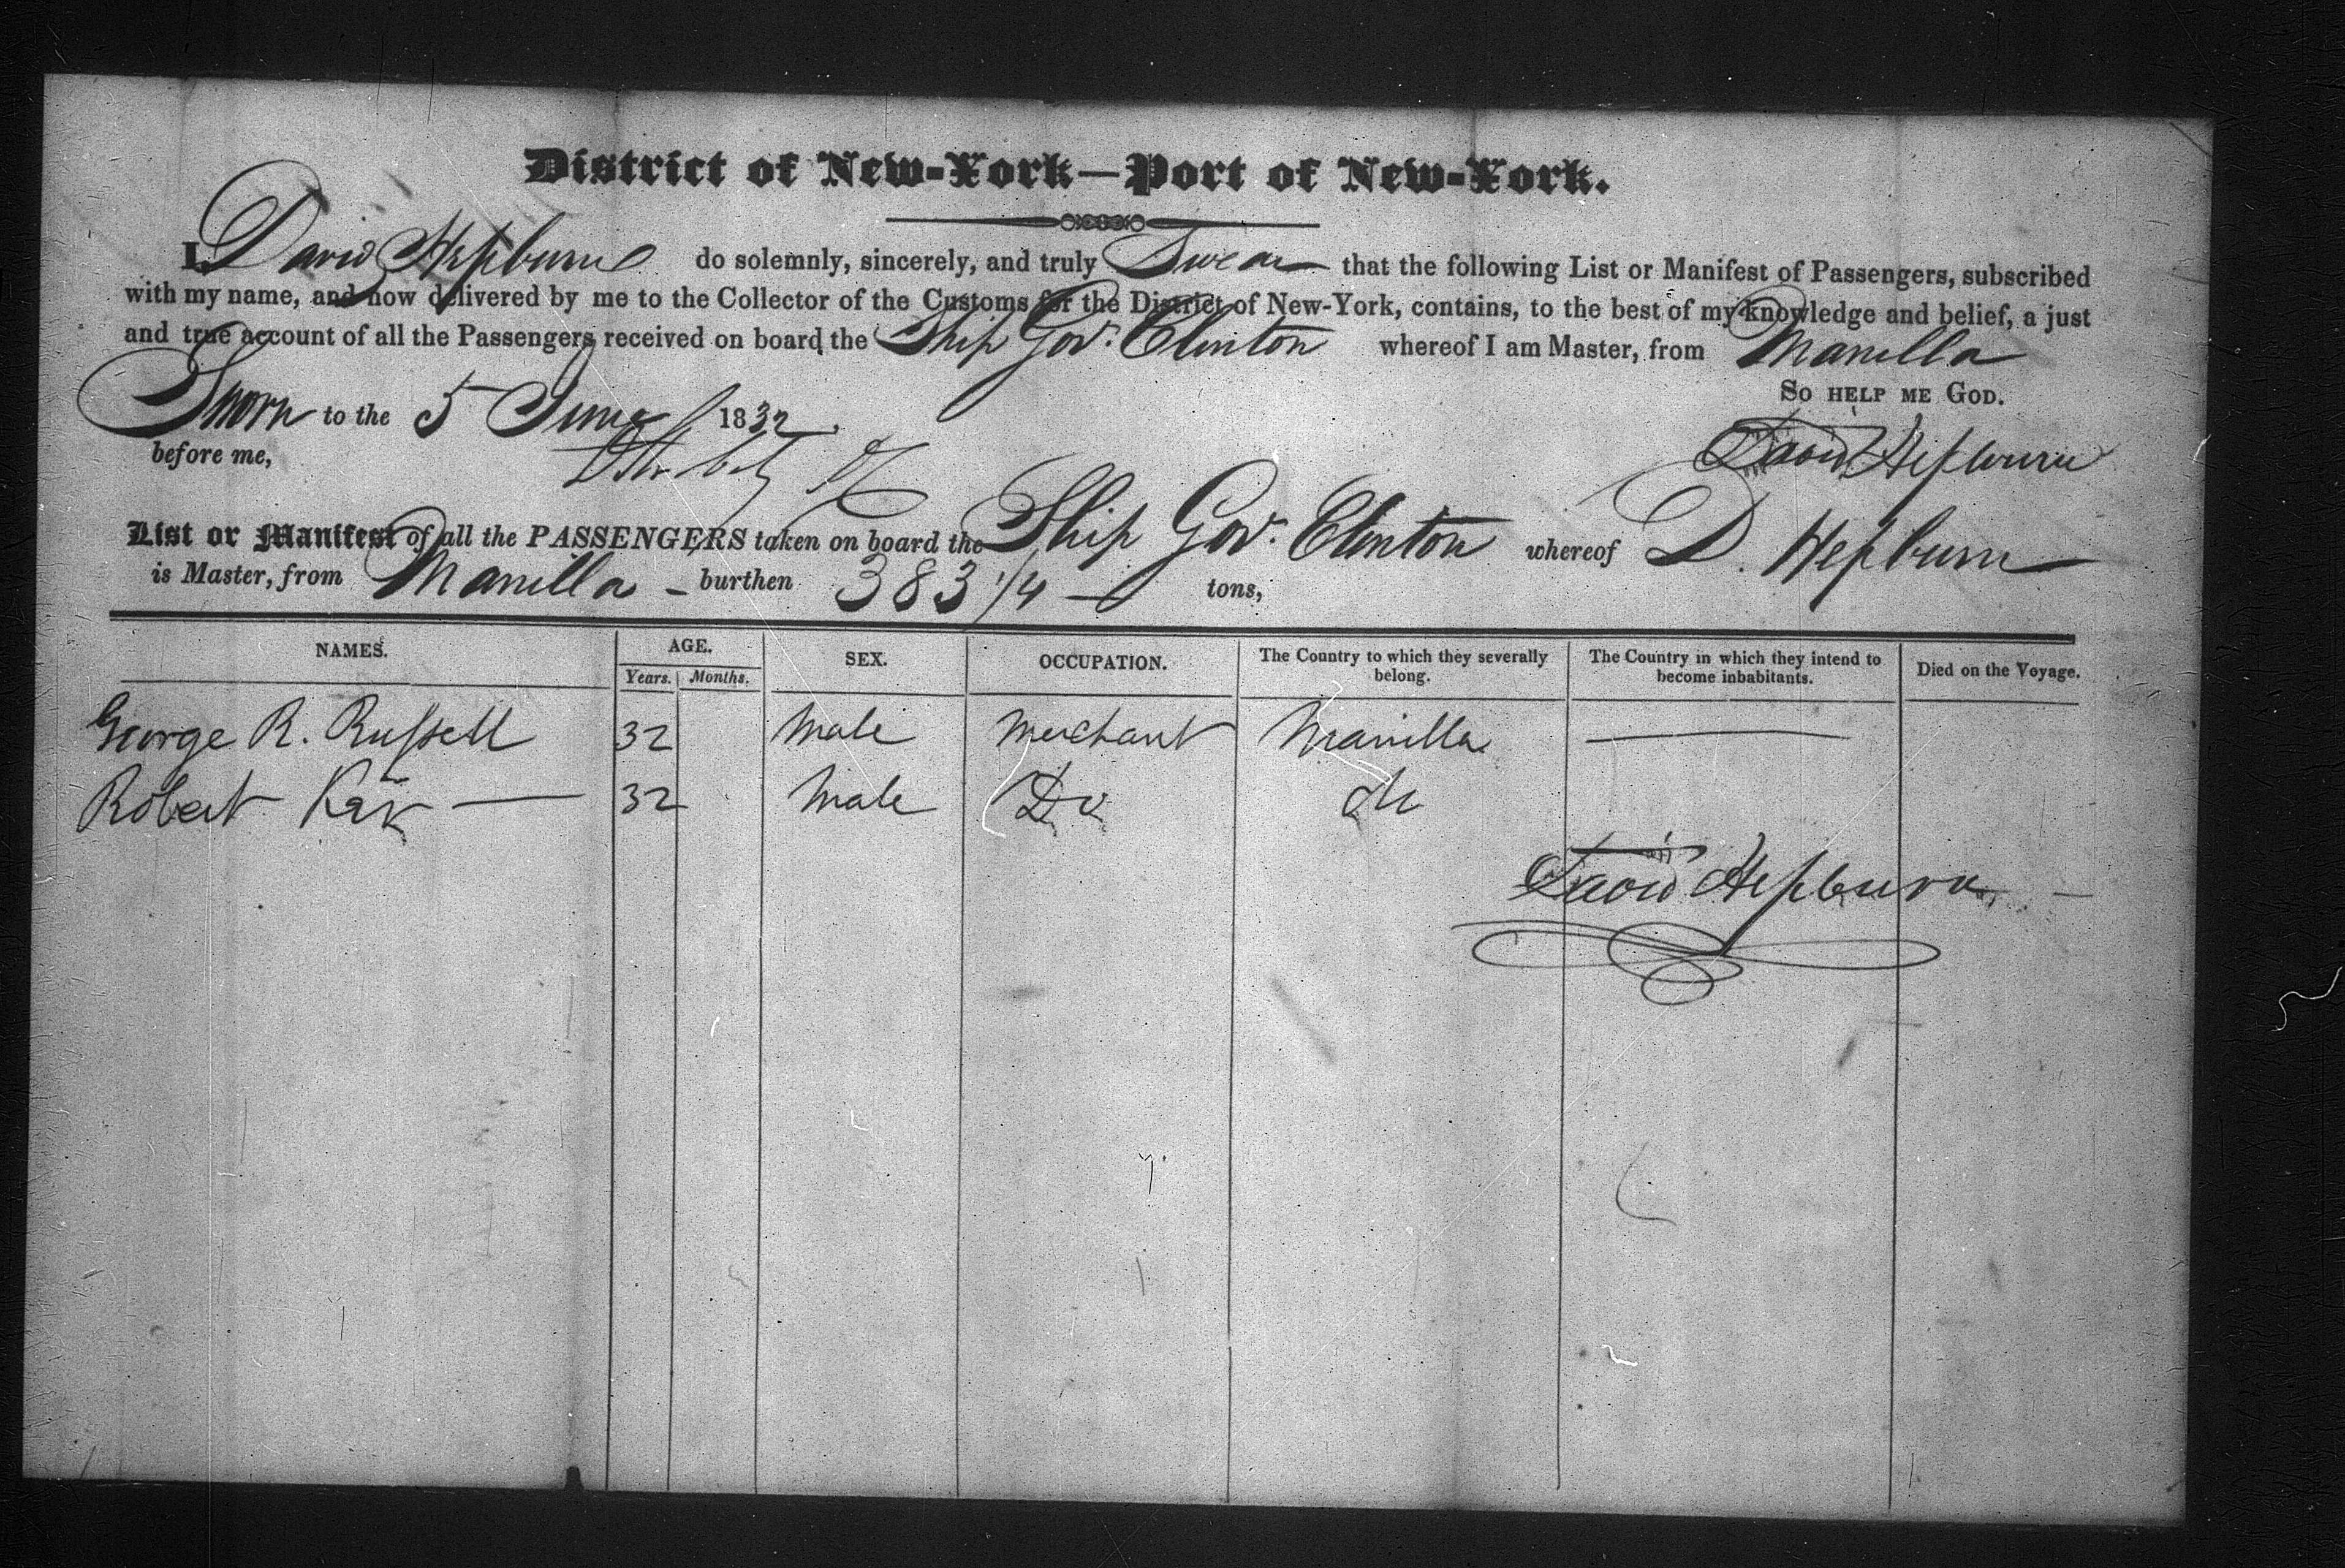 District of New-York—Port of New-York.
I, David Hepburne do solemnly, sincerely, and truly Swear that the following List or Manifest of Passengers, subscribed
with my name, and now delivered by me to the Collector of the Customs for the District of New-York, contains, to the best of my knowledge and belief, a just
and true account of all the Passengers received on board the Ship Gov. Clinton whereof I am Master, from Manilla
So help me God.
Sworn to the 5 June 1832.
before me,
David Hepburn
List or Manifest of all the PASSENGERS taken on board the Ship Gov. Clinton whereof D. Hepburn
is Master, from Manilla - burthen 383 1/4 — tons,
NAMES. AGE. SEX. OCCUPATION. The Country to which they severally belong. The Country in which they intend to become inhabitants. Died on the Voyage.
Years. Months.
George R. Russell 32 Male Merchant Manilla —
Robert — 32 Male Do do
David Hepburn